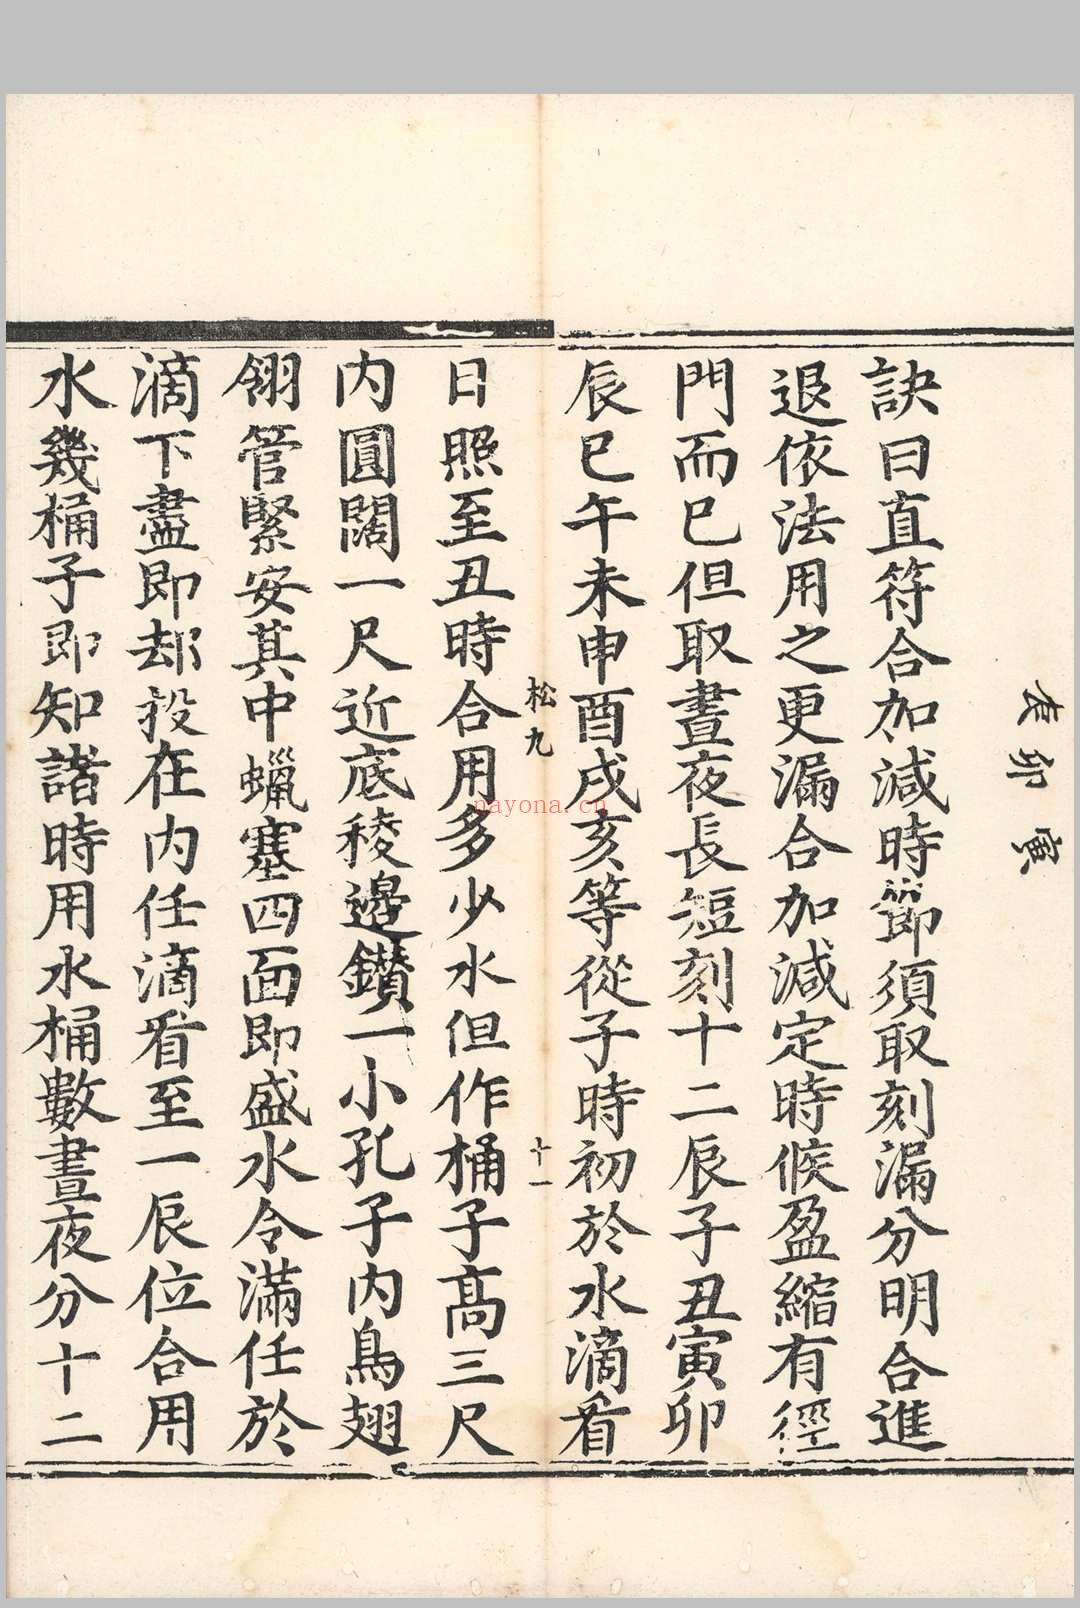 亥卯寅
訣曰直符合加減時節須取刻漏分明合進
退依法用之更漏合加減定時候盈縮有徑
門而已但取晝夜長短刻十二辰子丑寅卯
辰巳午未申酉戌亥等從子時初於水滴看
松九
十一
日照至丑時合用多少水但作桶子高三尺
内圓闊一尺近底稜邊鑽一小孔子内鳥翅
翎管緊安其中蠟塞四面即盛水令滿任於
滴下盡即却投在内任滴看至一辰位合用
水幾桶子即知諸時用水桶數晝夜分十二
nayona.cn